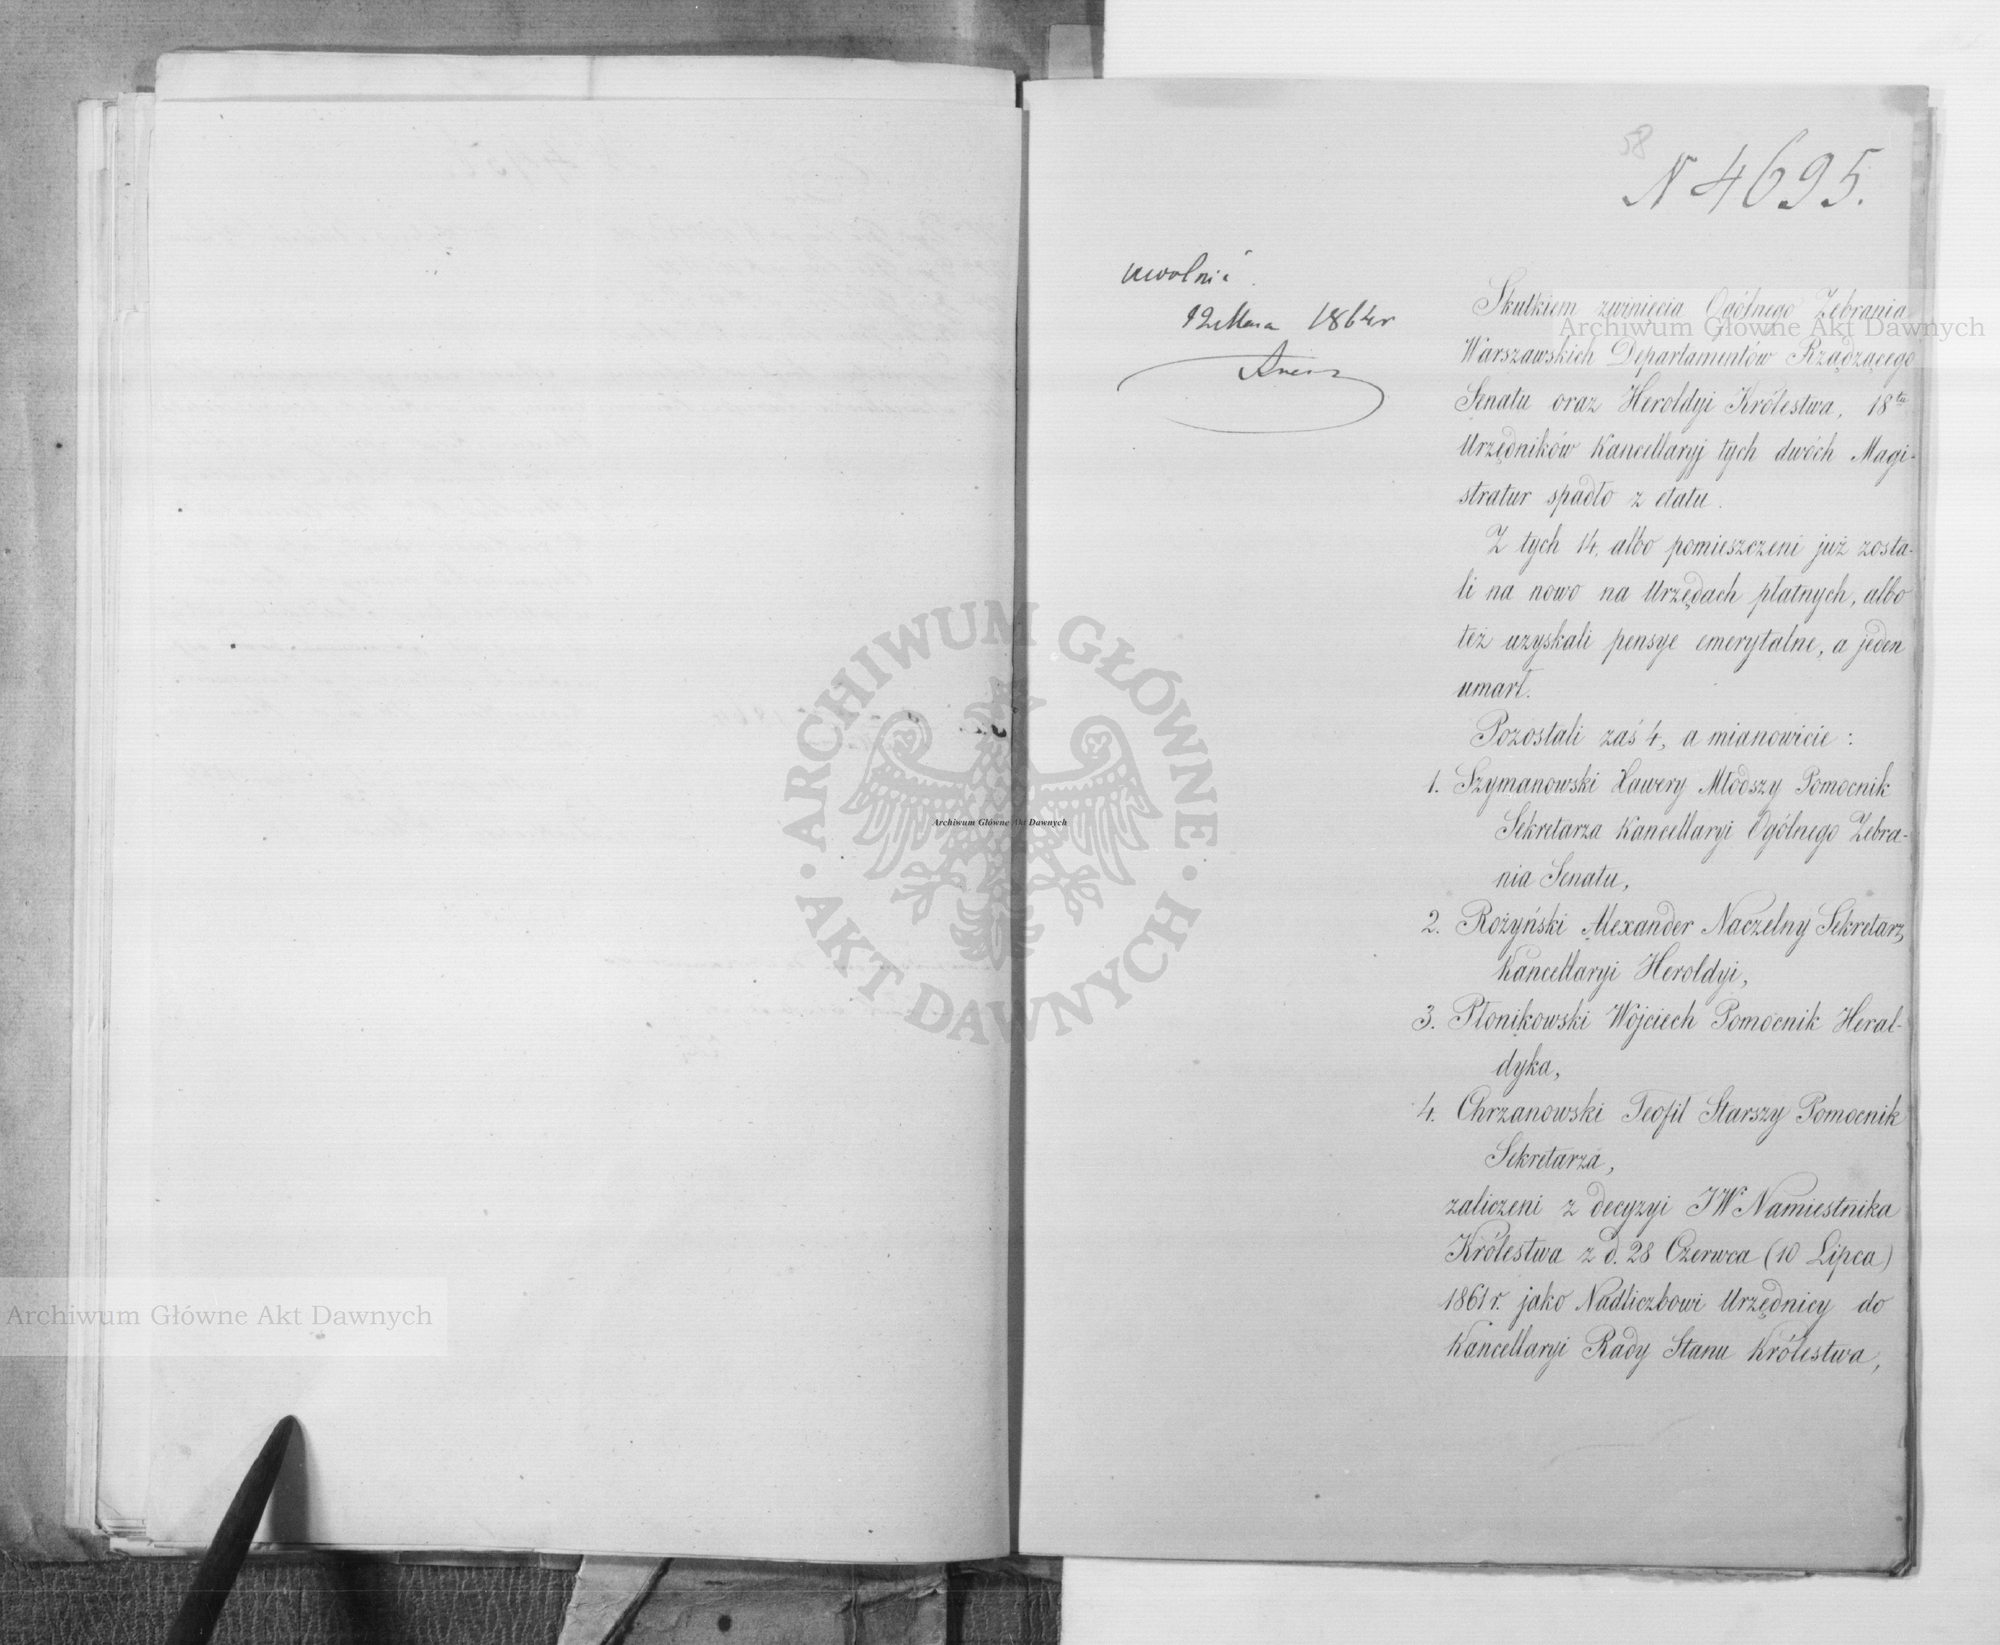 58
N 4695.
uwolnić
12 Marca 1864 r
Skutkiem zwinięcia Ogólnego Zebrania
Warszawskich Departamentów Rządzącego
Senatu oraz Heroldyi Królestwa, 18tu
Urzędników Kancellaryj tych dwóch Magi-
stratur spadło z etatu.
Z tych 14, albo pomieszczeni już zosta-
li na nowo na Urzędach płatnych, albo
też uzyskali pensye emerytalne, a jeden
umarł.
Pozostali zaś 4, a mianowicie:
1. Szymanowski Xawery Młodszy Pomocnik
Sekretarza Kancellaryi Ogólnego Zebra-
nia Senatu,
2. Rożyński Alexander Naczelny Sekretarz
Kancellaryi Heroldyi,
3. Płonikowski Wojciech Pomocnik Heral-
dyka,
4. Chrzanowski Teofil Starszy Pomocnik
Sekretarza,
zaliczeni z decyzyi JW Namiestnika
Królestwa z d. 28 Czerwca (10 Lipca)
1861 r. jako Nadliczbowi Urzędnicy do
Kancellaryi Rady Stanu Królestwa,
Archiwum Główne Akt Dawnych
ARCHIWUM GŁÓWNE
AKT DAWNYCH
Archiwum Główne Akt Dawnych
Archiwum Główne Akt Dawnych